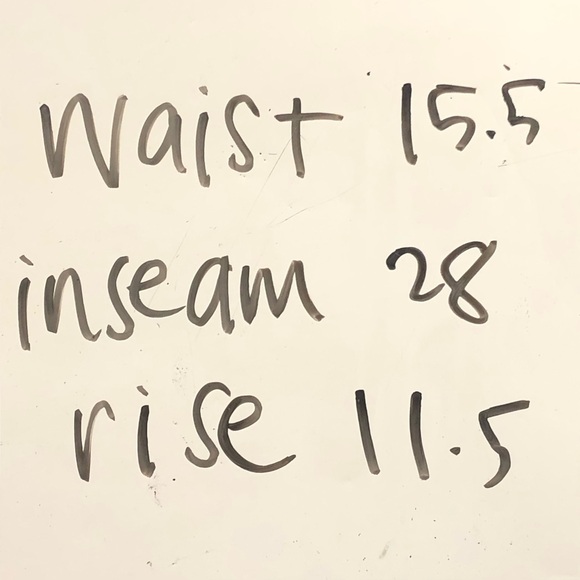 Waist 15.5
inseam 28
rise 11.5